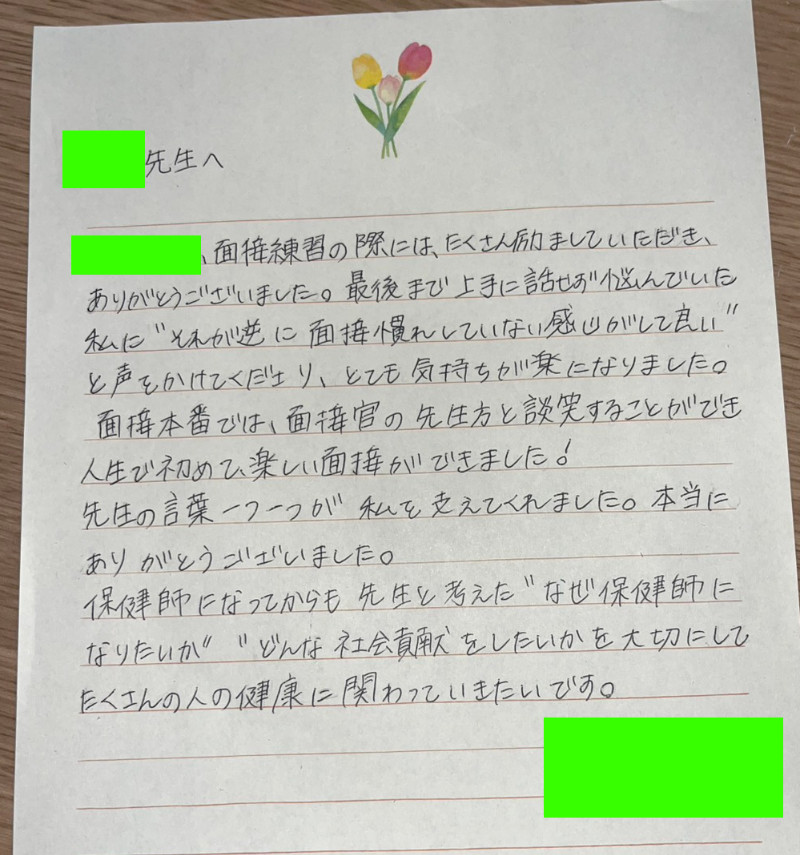 先生へ
、面接練習の際には、たくさん励ましていただき、
ありがとうございました。最後まで上手に話せず悩んでいた
私に"それが逆に面接慣れしていない感じがして良い"
と声をかけてくださり、とても気持ちが楽になりました。
面接本番では、面接官の先生方と談笑することができ
人生で初めて、楽しい面接ができました!
先生の言葉一つ一つが私を支えてくれました。本当に
ありがとうございました。
保健師になってからも先生と考えた"なぜ保健師に
なりたいか" "どんな社会貢献をしたいかを大切にして
たくさんの人の健康に関わっていきたいです。